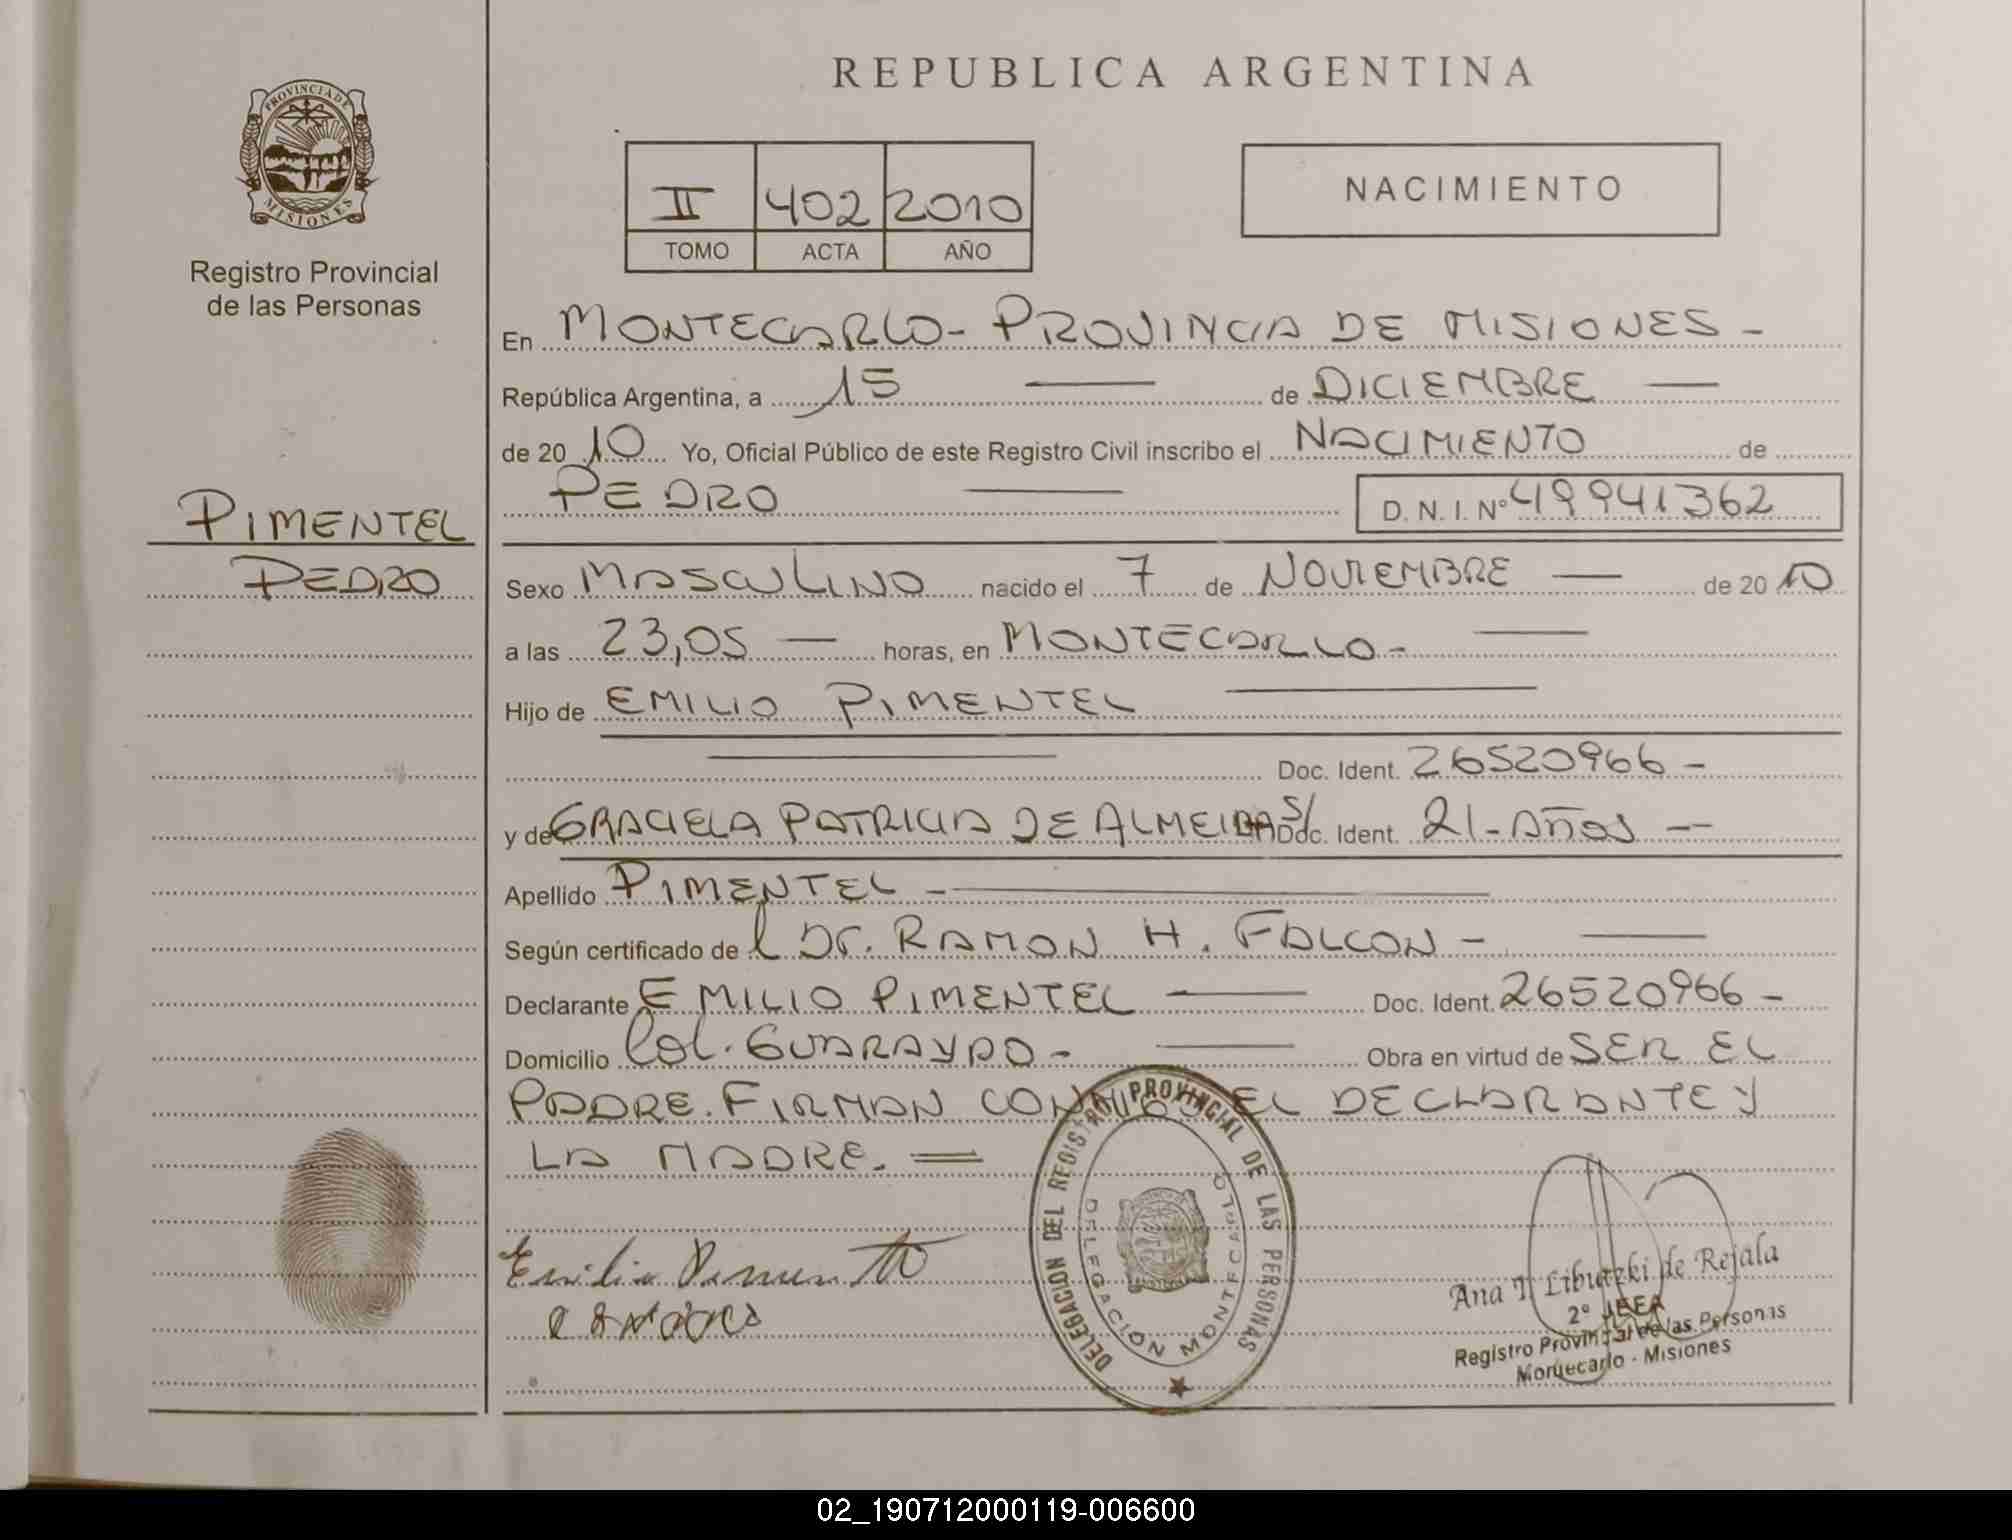 PROVINCIA DE
MISIONES
Registro Provincial
de las Personas
PIMENTEL
PEDRO
REPUBLICA ARGENTINA
II 402 2010
TOMO ACTA AÑO
NACIMIENTO
En MONTECARLO - PROVINCIA DE MISIONES -
República Argentina, a 15 — de DICIEMBRE —
de 2010 Yo, Oficial Público de este Registro Civil inscribo el NACIMIENTO de
PEDRO — D. N. I. Nº 49941362
Sexo MASCULINO nacido el 7 de NOVIEMBRE — de 2010
a las 23,05 — horas, en MONTECARLO - —
Hijo de EMILIO PIMENTEL —
— Doc. Ident. 26520966 -
y de GRACIELA PATRICIA DE ALMEIDA S/ Doc. Ident. 21 - AÑOS —
Apellido PIMENTEL - —
Según certificado de l Dr. RAMON H. FALCON - —
Declarante EMILIO PIMENTEL — Doc. Ident. 26520966 -
Domicilio Col. GUARAYPO - — Obra en virtud de SER EL
PADRE. FIRMAN CONMIGO EL DECLARANTE Y
LA MADRE. =
DELEGACION DEL REGISTRO PROVINCIAL DE LAS PERSONAS
DELEGACION MONTECARLO
Emilio Pimentel
Ana T. Libutzki de Rejala
2º JEFA
Registro Provincial de las Personas
Montecarlo - Misiones
02_190712000119-006600